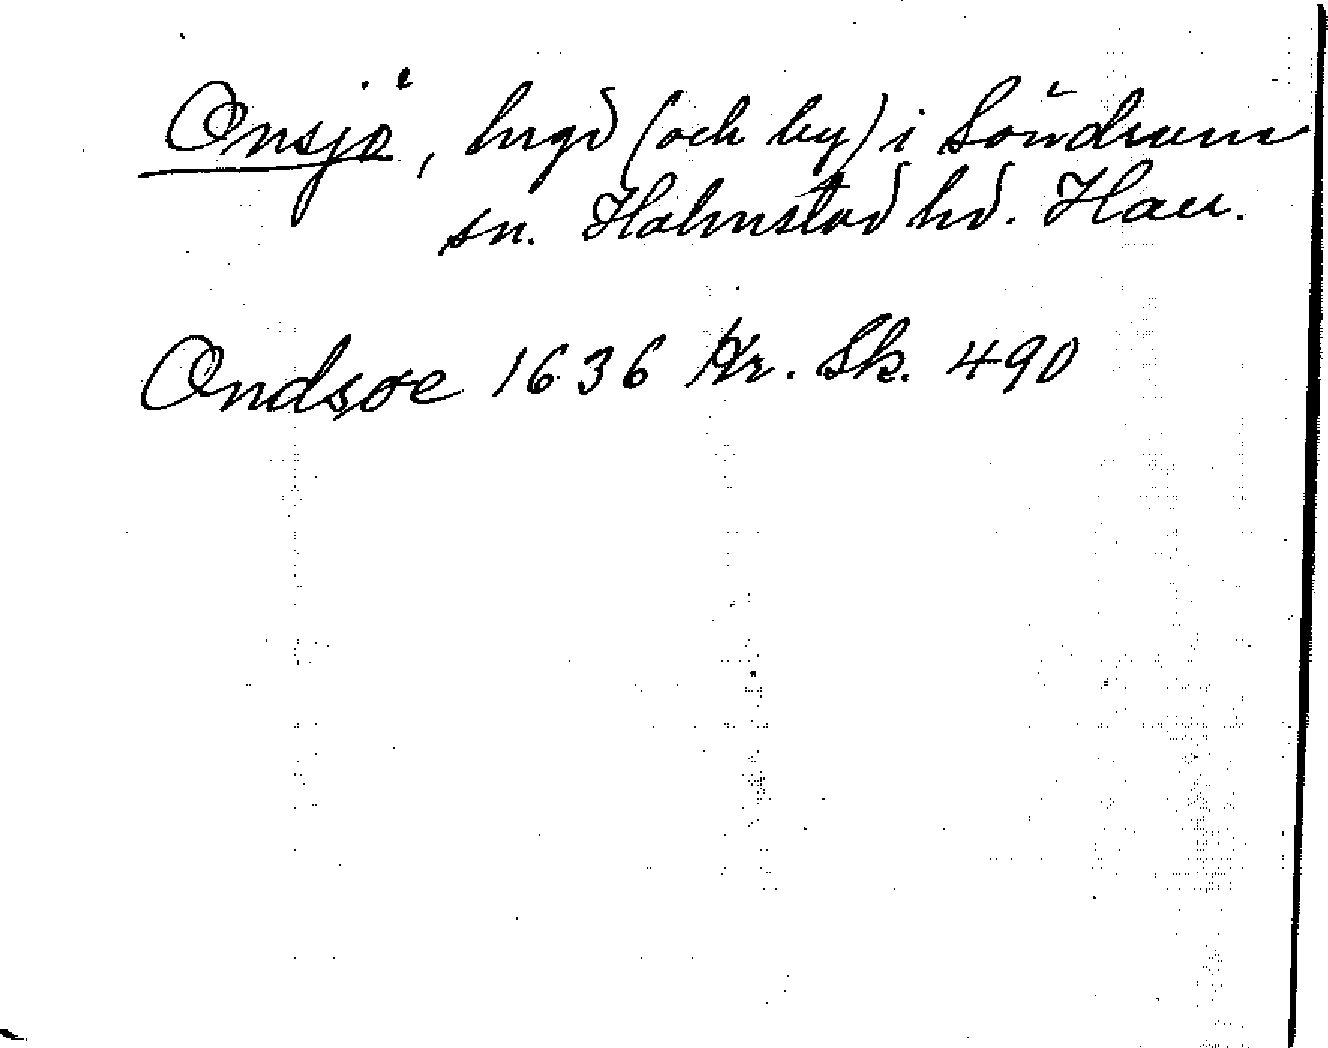 Onsjö, hrgd (och by) i Söndrum
sn. Halmstad hd. Hall.
Ondsøe 1636 Kr. Sk. 490